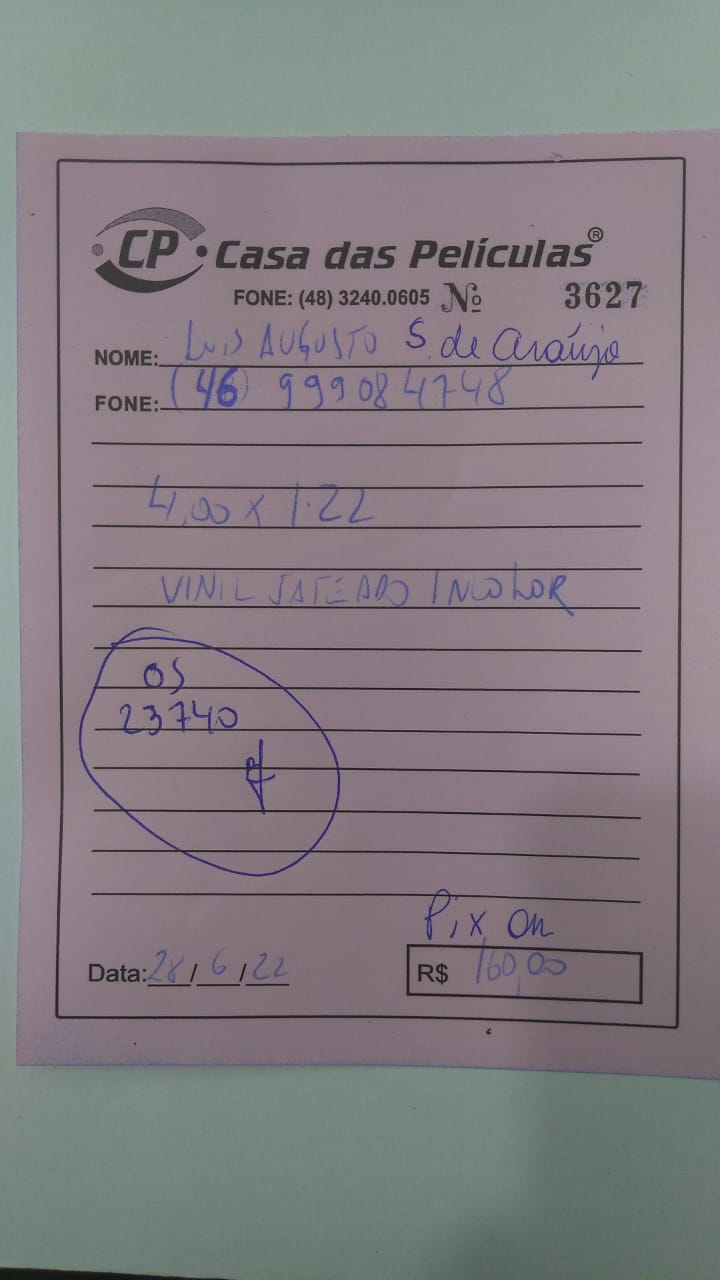 CP Casa das Películas®
FONE: (48) 3240.0605 Nº 3627
NOME: LUIS AUGUSTO S. de Araújo
FONE: (46) 999084748
4,00 x 1.22
VINIL JATEADO INCOLOR
OS
23740
Pix On
Data: 28/6/22 R$ 160,00